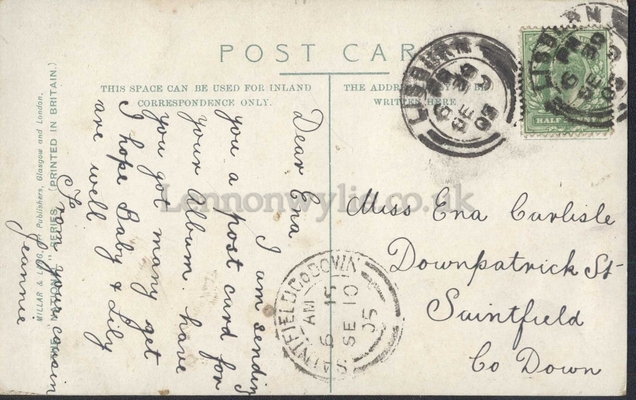 POST CARD
THIS SPACE CAN BE USED FOR INLAND
CORRESPONDENCE ONLY.
THE ADDRESS
WRITTEN HERE
Dear Ena
I am sending
you a post card for
your Album. have
you got many yet
I hope Baby & Lily
are well
From your cousin
Jeannie
Miss Ena Carlisle
Downpatrick St
Saintfield
Co Down
LISBURN
SE
05
LISBURN
SE
HALF
SAINTFIELD CO DOWN
AM
6 15
SE 10
05
MILLAR & LANG, Art Publishers, Glasgow and London.
"NATIONAL" SERIES (PRINTED IN BRITAIN.)
Lennonwylie.co.uk